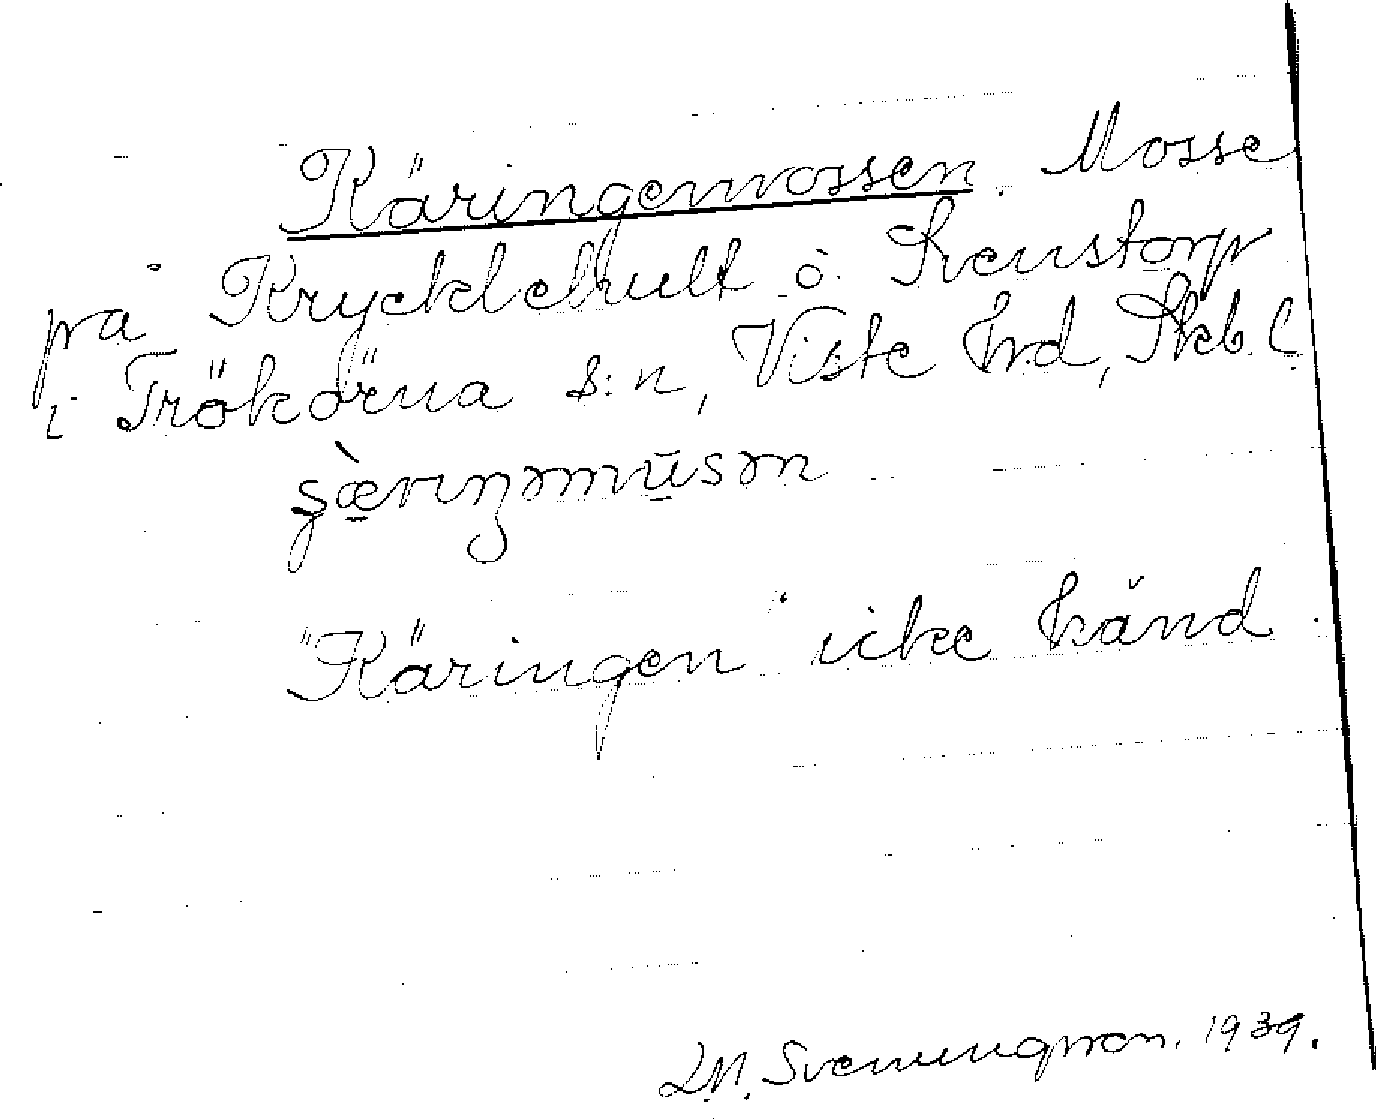 Käringemossen. Mosse
på Krycklehult o. Svenstorp
i Trökörna s:n, Viste hrd, Skb. l.
"Käringen" icke känd.
Svenungsson. 1939.